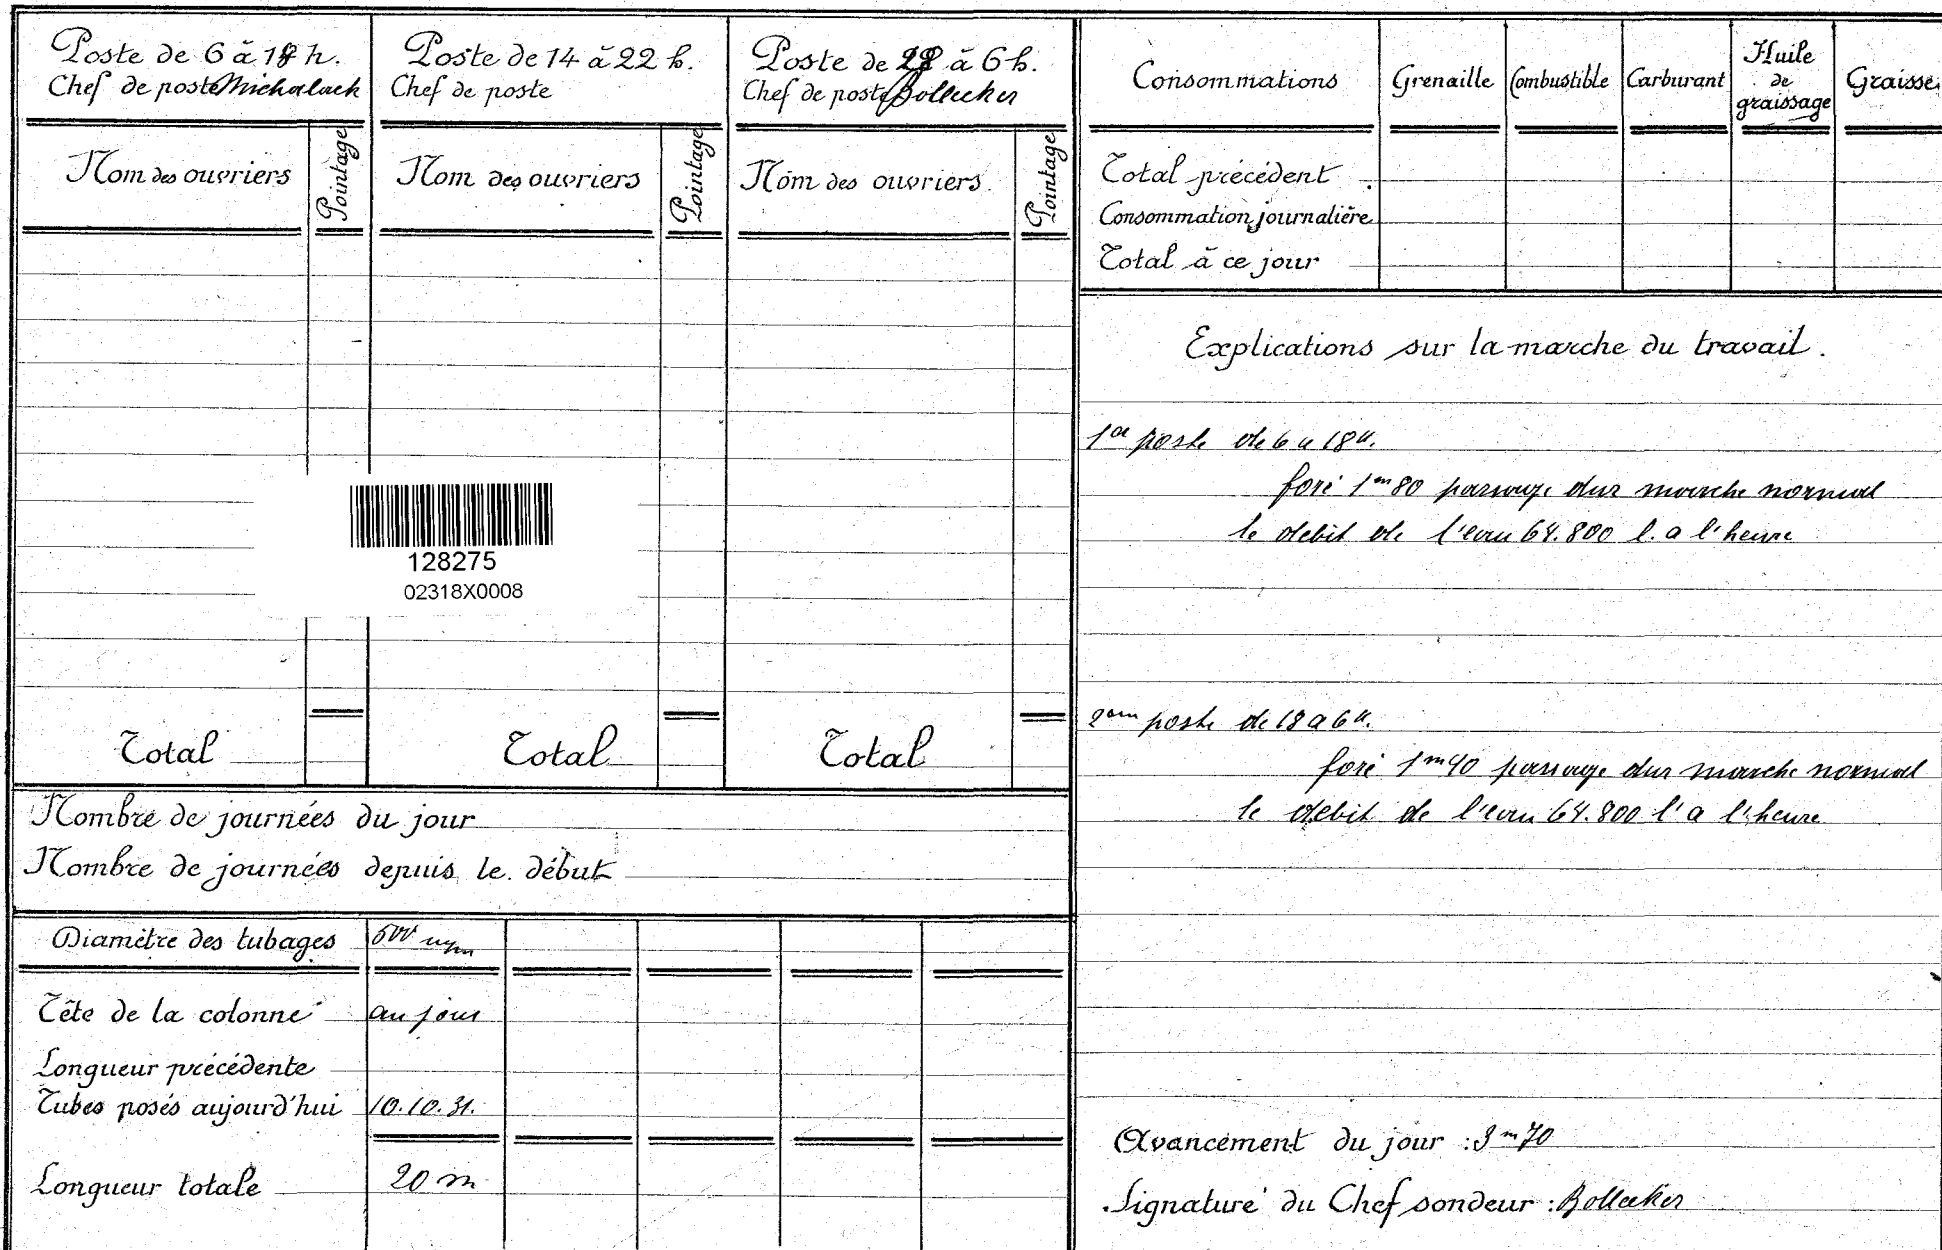 Poste de 6 à 18 h.
Chef de poste Michalack
Nom des ouvriers
Pointage
Total
Poste de 14 à 22 h.
Chef de poste
Nom des ouvriers
Pointage
Total
Poste de à 6 h.
Chef de poste Bollecker
Nom des ouvriers
Pointage
Total
128275
02318X0008
Nombre de journées du jour
Nombre de journées depuis le début
Diamètre des tubages 600
Tête de la colonne au jour
Longueur précédente
Tubes posés aujourd'hui 10.10.31.
Longueur totale 20 m
Consommations Grenaille Combustible Carburant Huile de graissage Graisse
Total précédent
Consommation journalière
Total à ce jour
Explications sur la marche du travail.
poste de 6 a 18 h.
foré 1m80 passage dur marche normal
le debit de l'eau 64.800 l. a l'heure
2em poste de 18 a 6 h.
foré passage dur marche normal
le debit de l'eau 64.800 l' a l'heure
Avancement du jour :
Signature du Chef sondeur : Bollecker